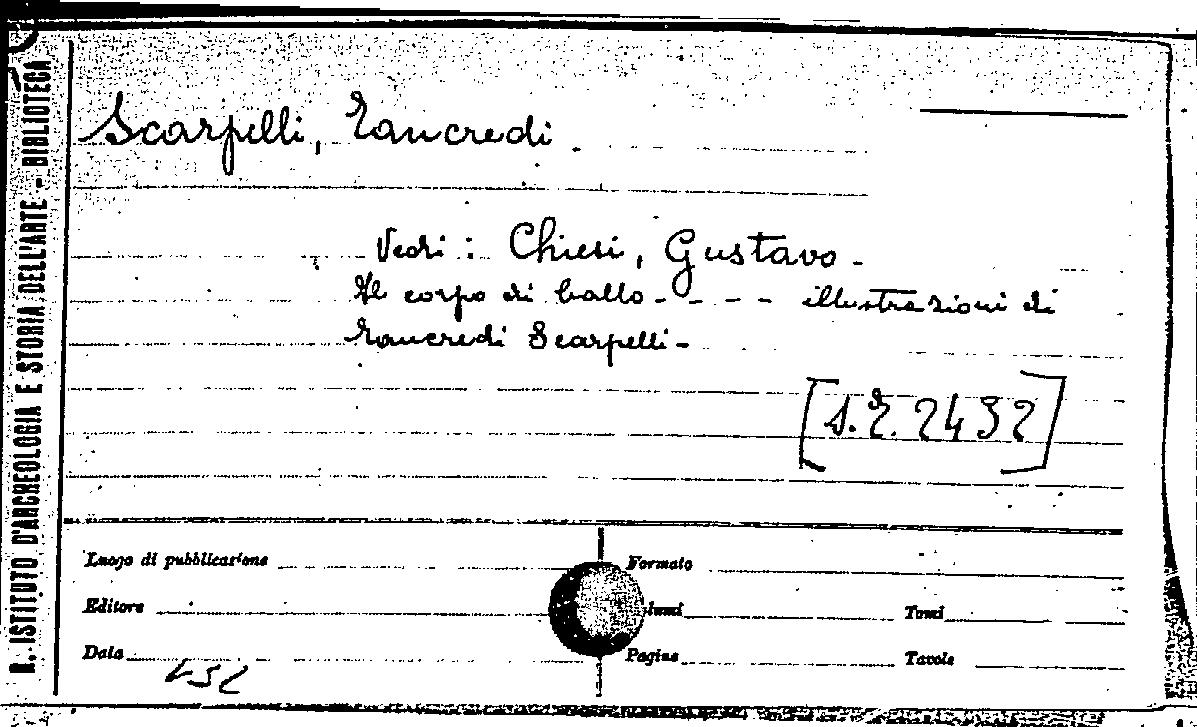 R. ISTITUTO D'ARCHEOLOGIA E STORIA DELL'ARTE - BIBLIOTECA
Scarpelli, Tancredi
Vedi : Chiesi, Gustavo -
Il corpo di ballo - - - - illustrazioni di
Tancredi Scarpelli -
[S.T. 2432]
Luogo di pubblicazione
Formato
Editore
Volumi
Tomi
Data
Pagine
Tavole